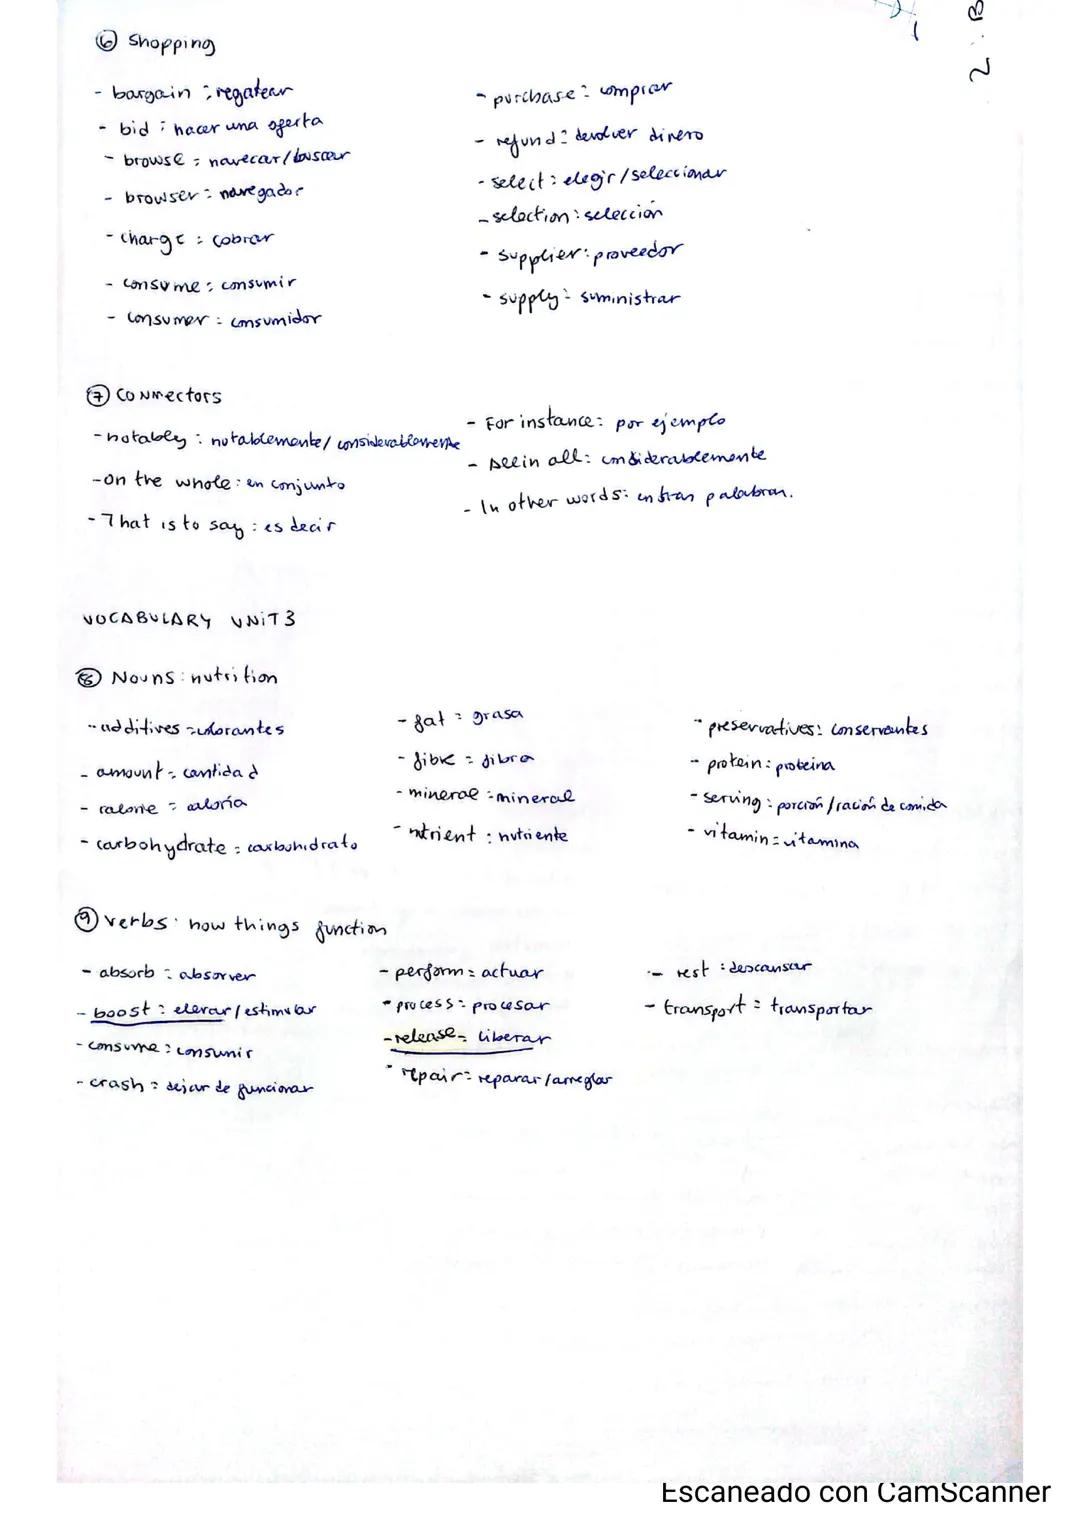 2.B
⑥ Shopping
- bargain : regatear
- bid : hacer una oferta
- browse : navecar/buscar
- browser : navegador
- charge : cobrar
- consume : consumir
- consumer : consumidor
- purchase : comprar
- refund : devolver dinero
- select : elegir/seleccionar
- selection : selección
- supplier : proveedor
- supply : suministrar
⑦ Connectors
- notably : notablemente/considerablemente
- on the whole : en conjunto
- That is to say : es decir
- For instance : por ejemplo
- All in all : considerablemente
- In other words : en otras palabras.
VOCABULARY UNIT 3
⑧ Nouns : nutrition
- additives : colorantes
- amount : cantidad
- calorie : caloría
- carbohydrate : carbohidrato
- fat : grasa
- fibre : fibra
- mineral : mineral
- ntrient : nutriente
- preservatives : conservantes
- protein : proteina
- serving : porción/ración de comida
- vitamin : vitamina
⑨ verbs : how things function
- absorb : absorver
- boost : elevar/estimular
- consume : consumir
- crash : dejar de funcionar
- perform : actuar
- process : procesar
- release : liberar
- repair : reparar/arreglar
- rest : descansar
- transport : transportar
Escaneado con CamScanner